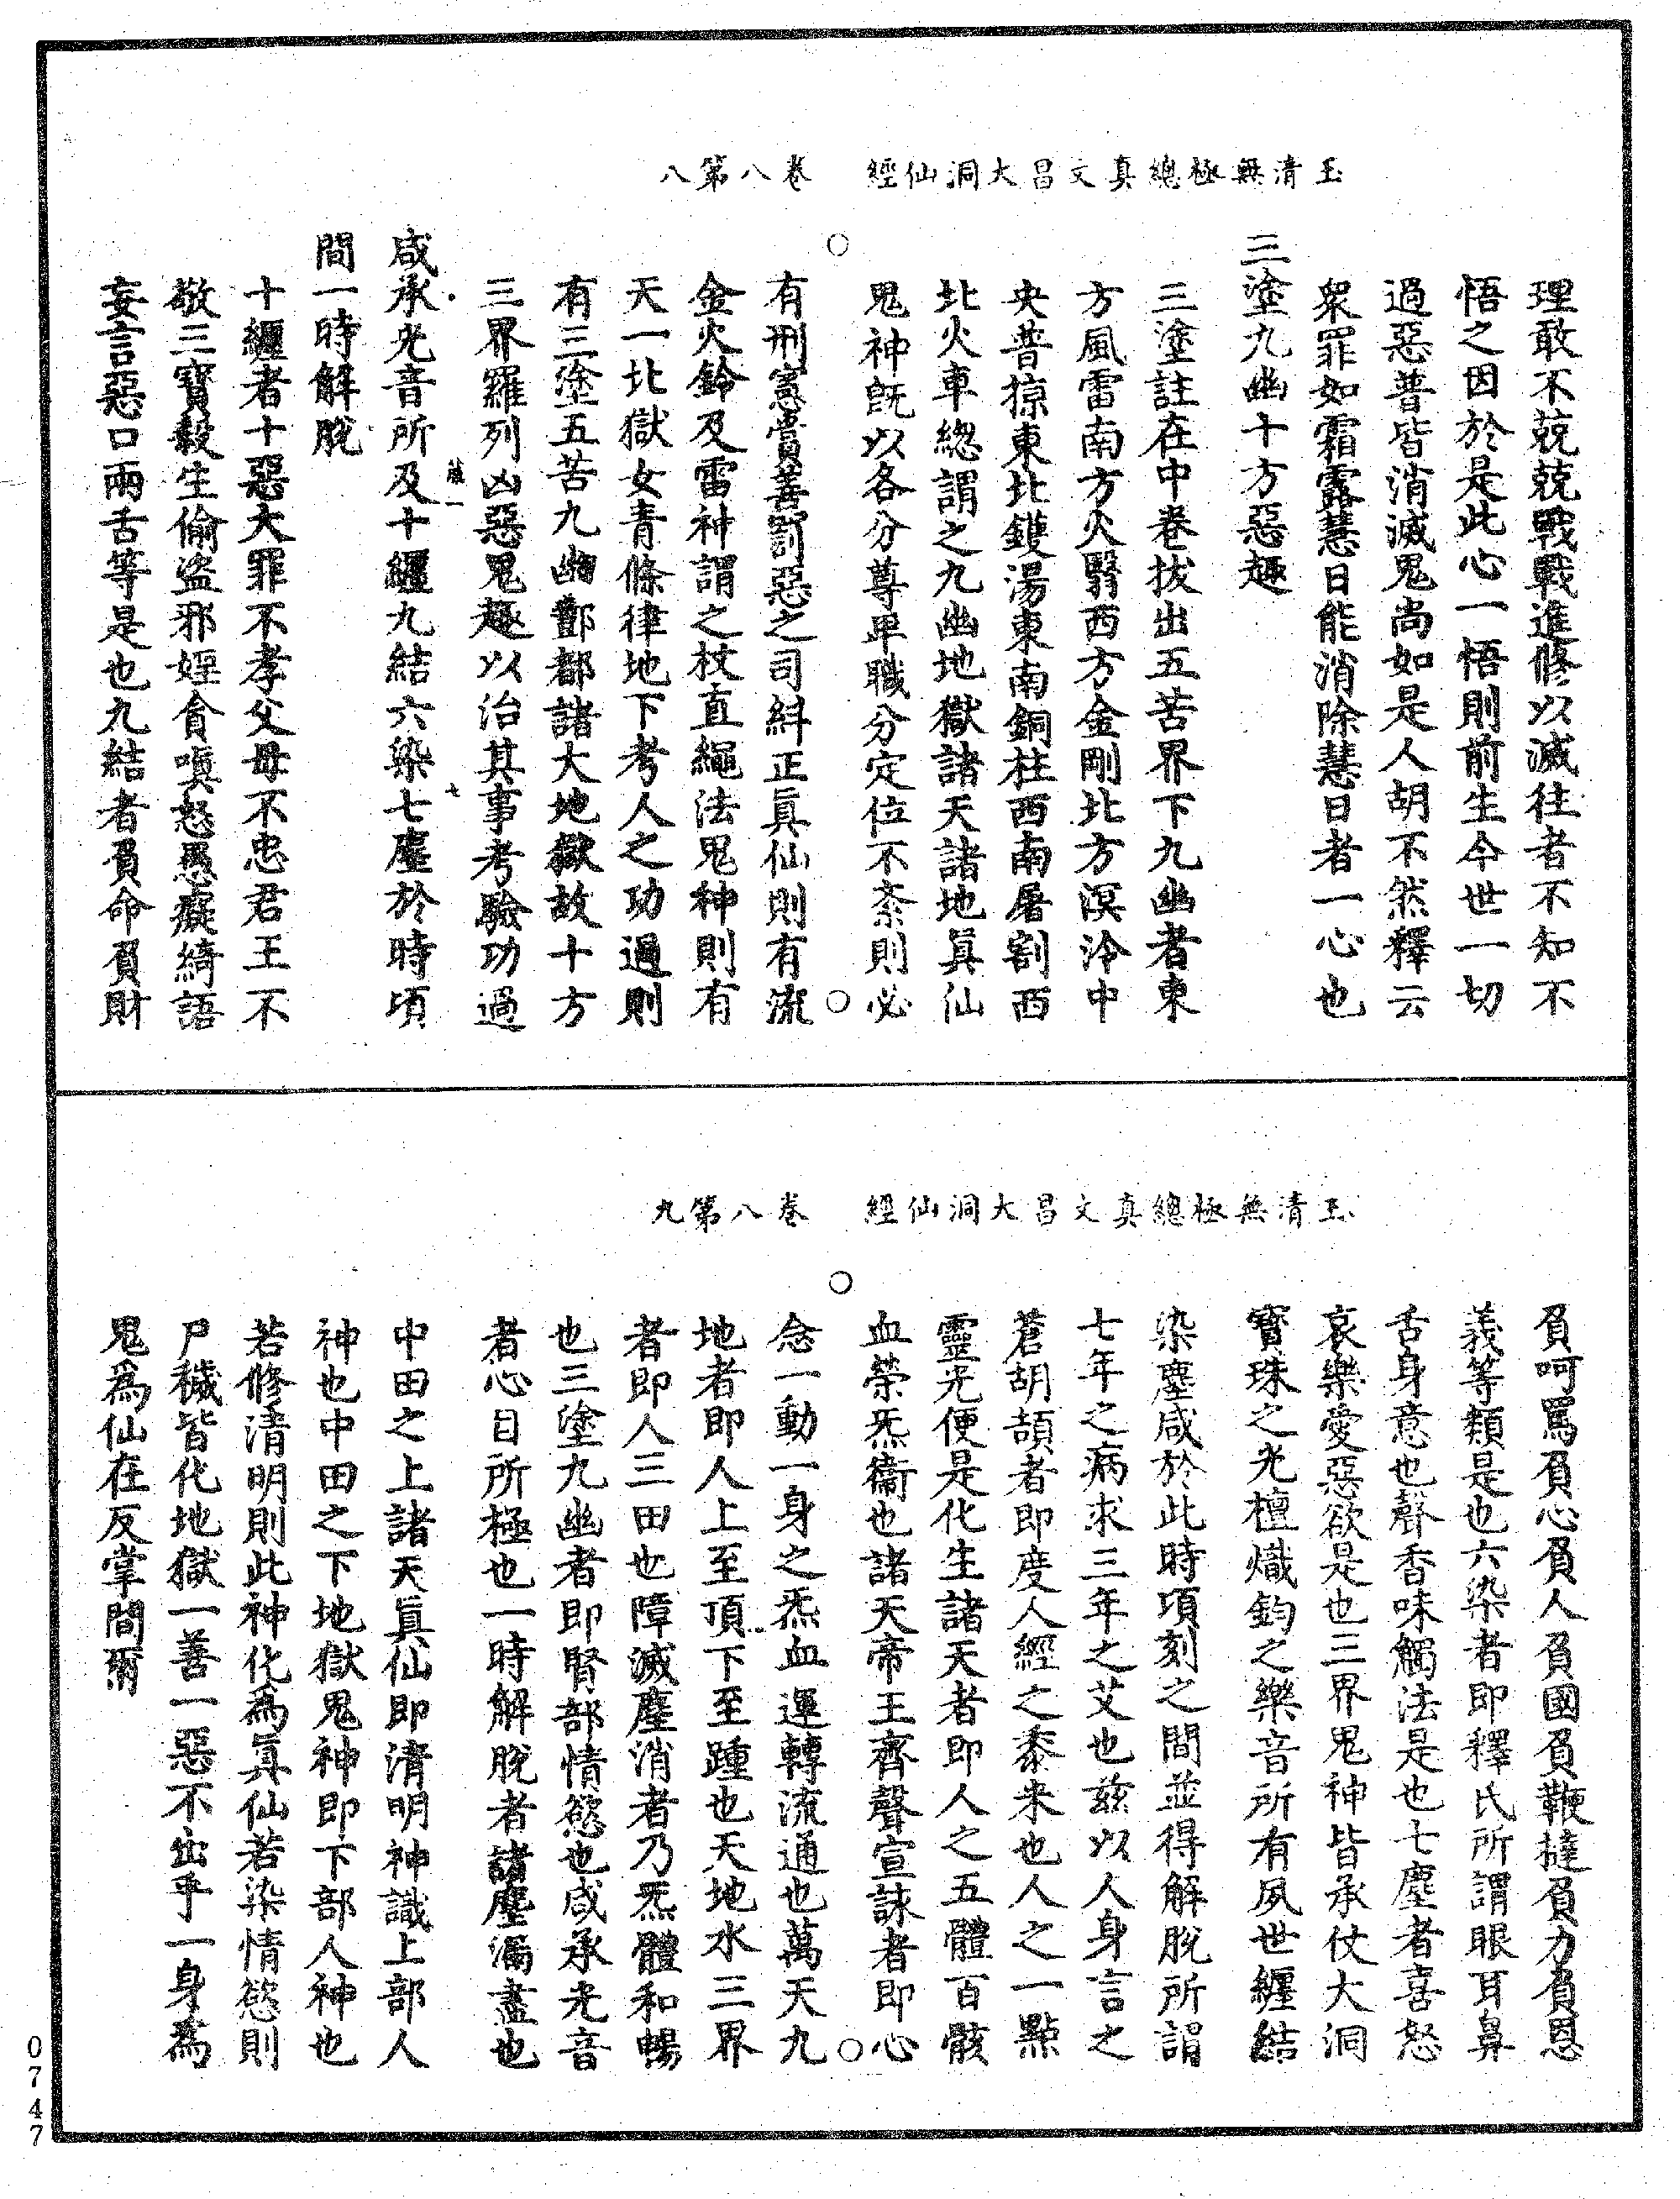 玉清無極總真文昌大洞仙經　卷八第八
理敢不兢兢戰戰進修以滅往者不知不
悟之因於是此心一悟則前生今世一切
過惡普皆消滅鬼尚如是人胡不然釋云
衆罪如霜露慧日能消除慧日者一心也
三塗九幽十方惡趣
三塗註在中卷拔出五苦界下九幽者東
方風雷南方火翳西方金剛北方溟泠中
央普掠東北鑊湯東南銅柱西南屠割西
北火車總謂之九幽地獄諸天諸地真仙
鬼神旣以各分尊卑職分定位不紊則必
有刑憲賞善罰惡之司紏正眞仙則有流
金火鈴及雷神謂之杖直繩法鬼神則有
天一北獄女青條律地下考人之功過則
有三塗五苦九幽酆都諸大地獄故十方
三界羅列凶惡鬼趣以治其事考驗功過
咸承光音所及十纒九結六染七塵於時頃
間一時解脫
十纒者十惡大罪不孝父母不忠君王不
敬三寶殺生偷盜邪婬貪嗔怒愚癡綺語
妄言惡口兩舌等是也九結者負命負財
玉清無極總真文昌大洞仙經　卷八第九
負呵罵負心負人負國負鞭撻負力負恩
義等類是也六染者即釋氏所謂眼耳鼻
舌身意也聲香味觸法是也七塵者喜怒
哀樂愛惡欲是也三界鬼神皆承仗大洞
寶珠之光檀熾鈞之樂音所有夙世纒結
染塵咸於此時頃刻之間並得解脫所謂
七年之病求三年之艾也玆以人身言之
蒼胡頡者即度人經之黍米也人之一點
靈光便是化生諸天者即人之五體百骸
血榮炁衞也諸天帝王齊聲宣詠者即心
念一動一身之炁血運轉流通也萬天九
地者即人上至頂下至踵也天地水三界
者即人三田也障滅塵消者乃炁體和暢
也三塗九幽者即腎部情慾也咸承光音
者心目所極也一時解脫者諸塵漏盡也
中田之上諸天眞仙即清明神識上部人
神也中田之下地獄鬼神即下部人神也
若修清明則此神化爲眞仙若染情慾則
尸穢皆化地獄一善一惡不出乎一身爲
鬼爲仙在反掌間爾
0747